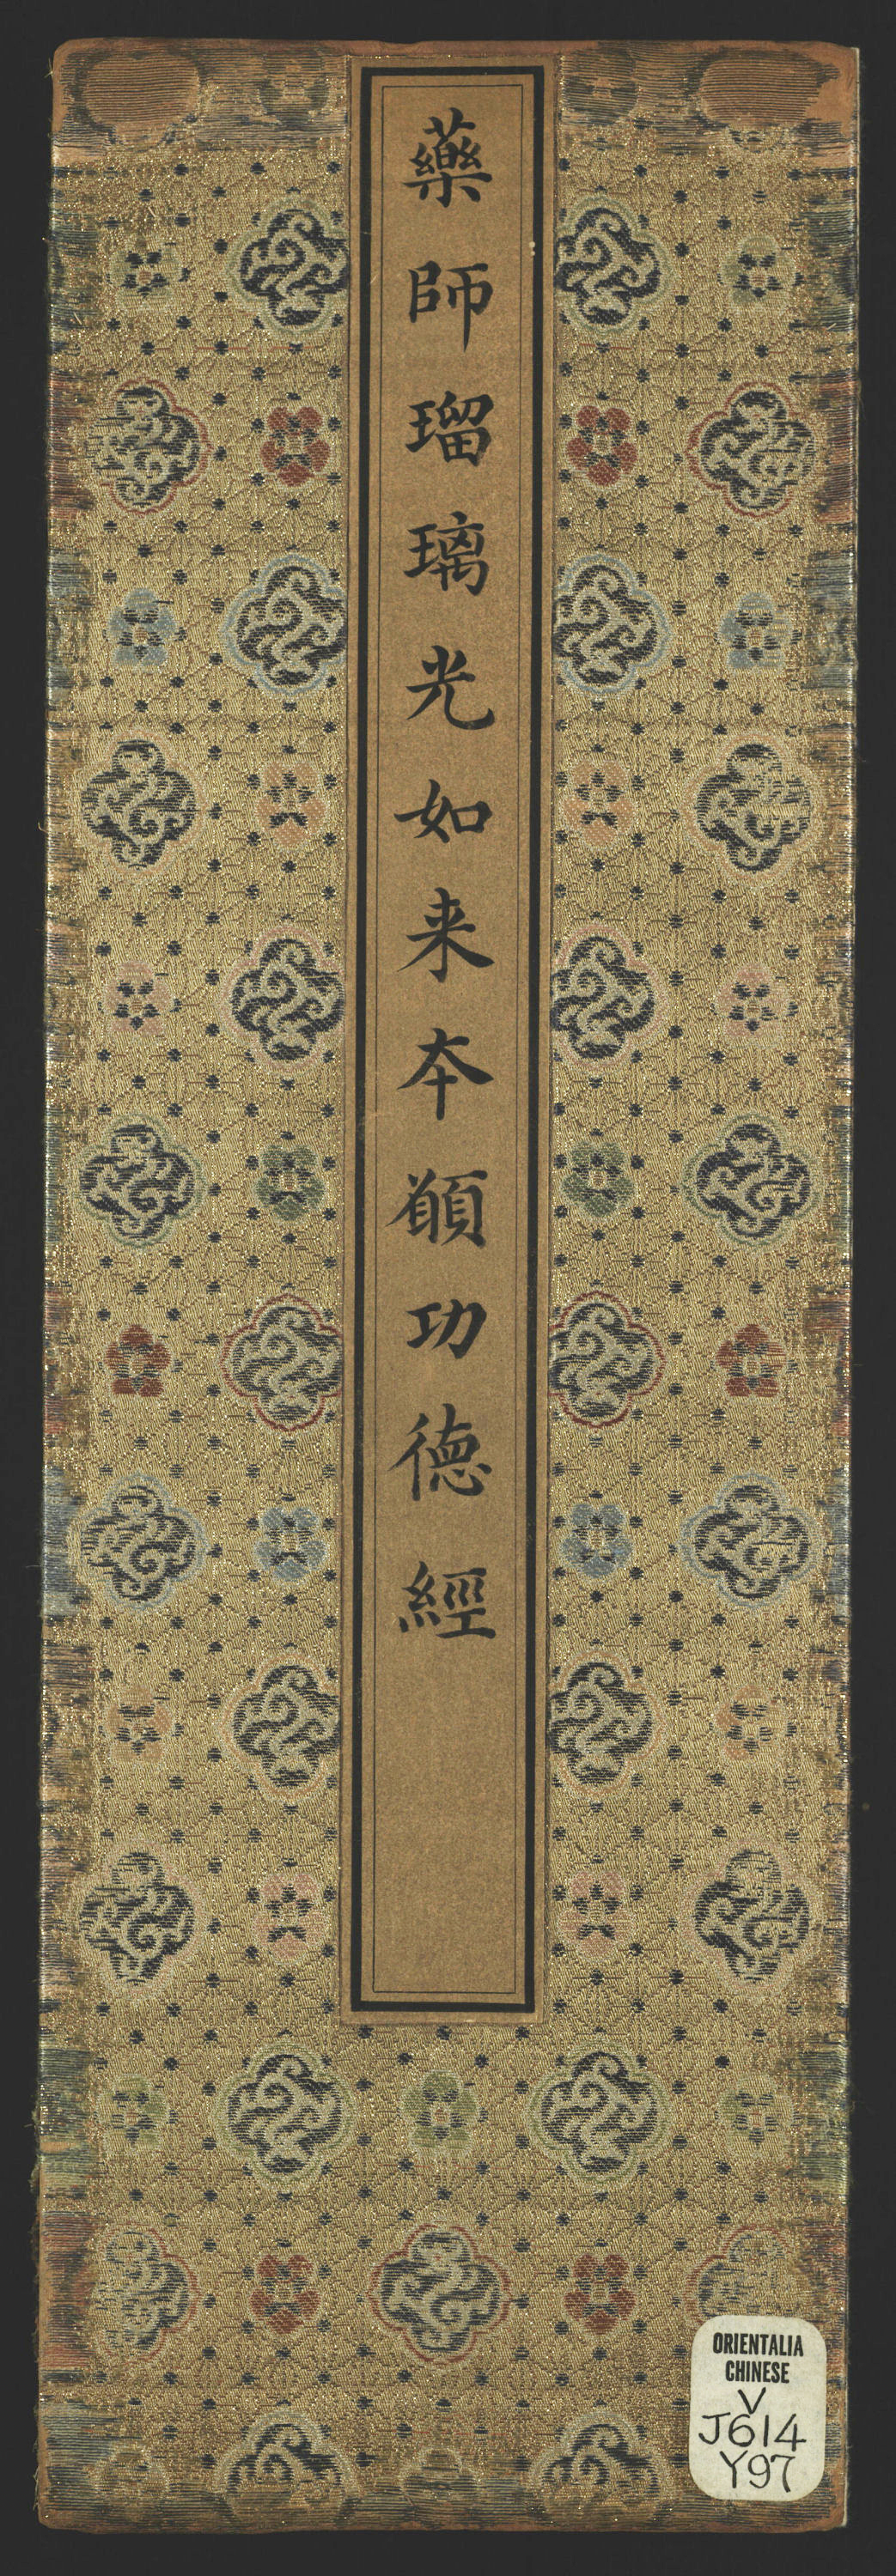 藥師瑠璃光如来本願功德經
ORIENTALIA
CHINESE
V
J614
Y97